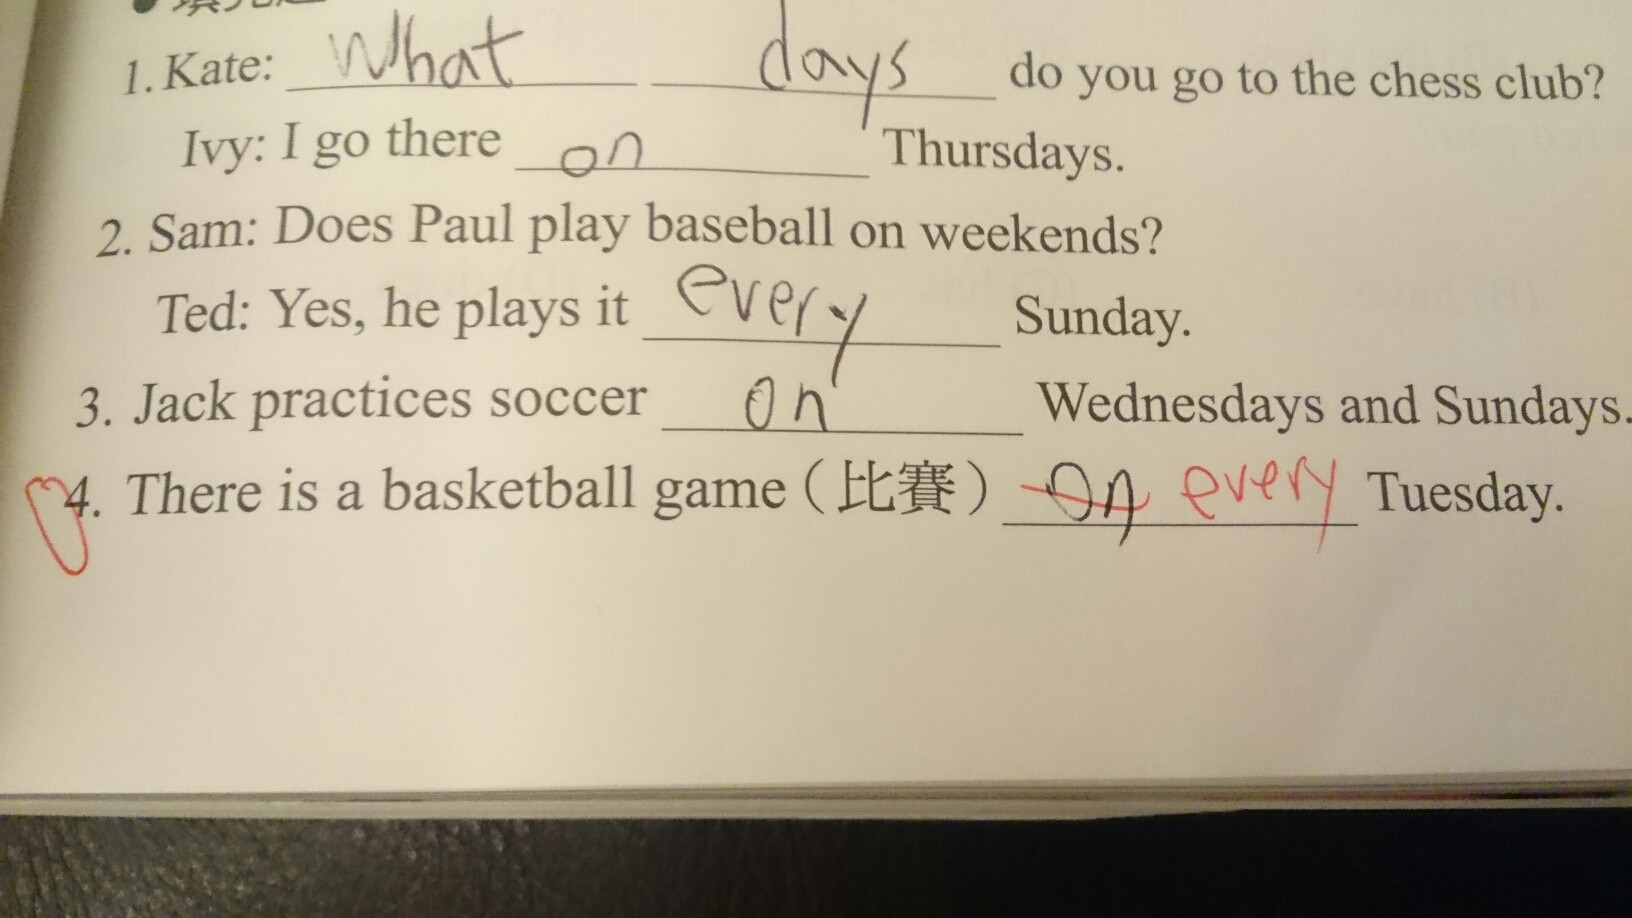 1. Kate: What days do you go to the chess club?
Ivy: I go there on Thursdays.
2. Sam: Does Paul play baseball on weekends?
Ted: Yes, he plays it every Sunday.
3. Jack practices soccer on Wednesdays and Sundays.
4. There is a basketball game (比賽) on every Tuesday.